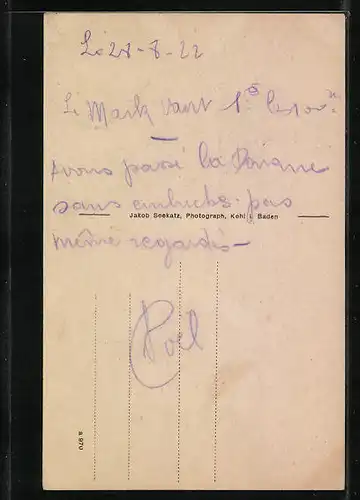 Le 28-8-22
Le Mark vaut 1 c
Avons passé la Douane
sans embuches pas
Jakob Seekatz, Photograph, Kehl i. Baden
même regardés -
a 970